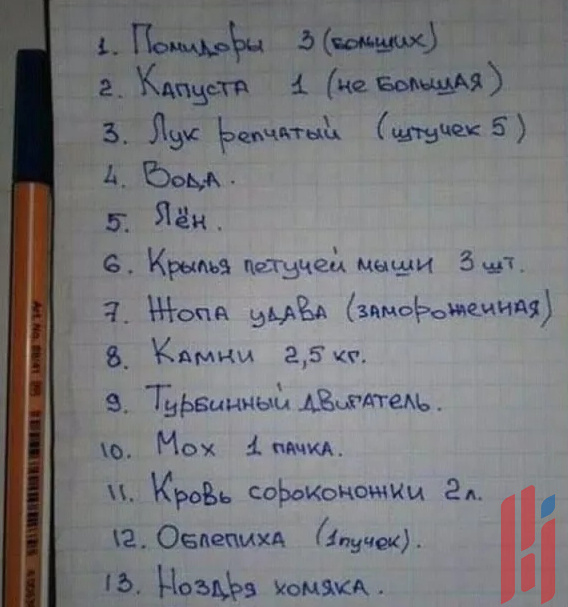 1. Помидоры 3 (больших)
2. Капуста 1 (не большая)
3. Лук репчатый (штучек 5)
4. Вода.
5. Лён.
6. Крылья летучей мыши 3 шт.
7. Жопа удава (замороженная)
8. Камни 2,5 кг.
9. Турбинный двигатель.
10. Мох 1 пачка.
11. Кровь сороконожки 2л.
12. Облепиха (1пучок).
13. Ноздря хомяка.
Art. No. 88/41